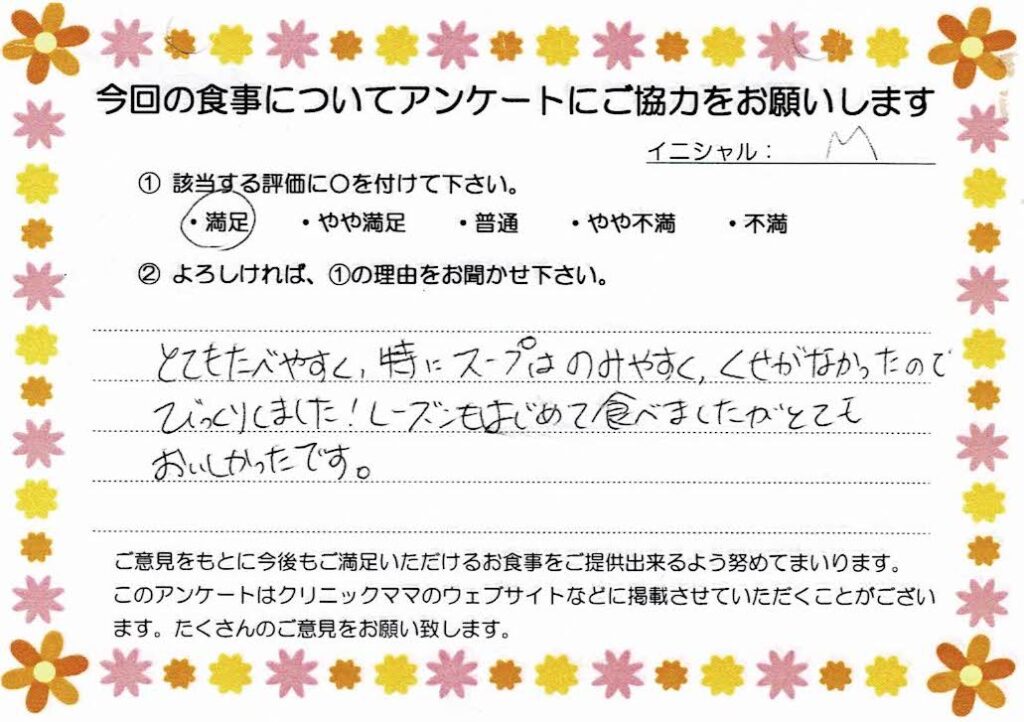 今回の食事についてアンケートにご協力をお願いします
イニシャル： M
① 該当する評価に〇を付けて下さい。
・満足 ・やや満足 ・普通 ・やや不満 ・不満
② よろしければ、①の理由をお聞かせ下さい。
とてもたべやすく、特にスープはのみやすく、くせがなかったので
びっくりしました！レーズンもはじめて食べましたがとても
おいしかったです。
ご意見をもとに今後もご満足いただけるお食事をご提供出来るよう努めてまいります。
このアンケートはクリニックママのウェブサイトなどに掲載させていただくことがござい
ます。たくさんのご意見をお願い致します。